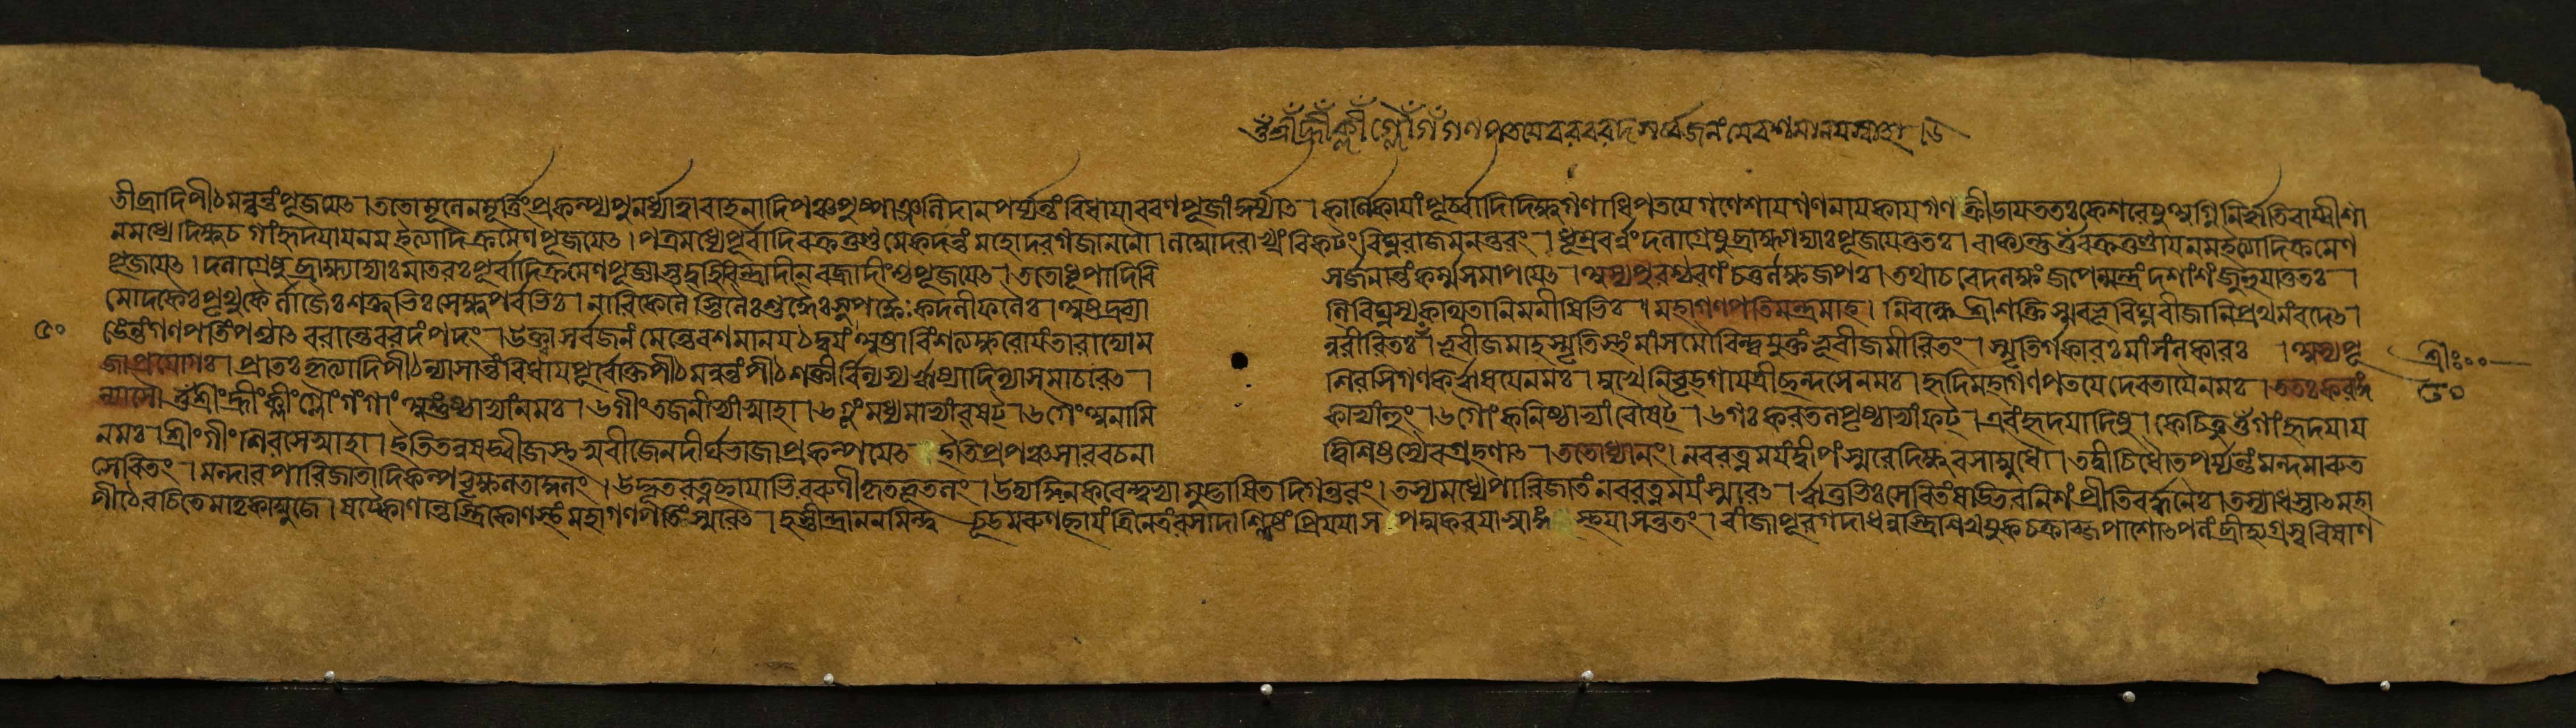 ওঁ শ্রীঁ হ্রীঁ ক্লীঁ গ্লৌঁ গঁ গণপতয়ে বর বরদ সর্ব্বজনং মে বশমানয় স্বাহা
তীব্রাদিপীঠমন্বন্তং পূজয়েৎ । ততো মূলেন মূর্ত্তিং প্রকল্প্য পুনর্ধ্যাত্বাবাহনাদি পঞ্চপুষ্পাঞ্জলিদানপর্য্যন্তং বিধায়াবরণপূজাং কুর্য্যাৎ । কর্ণিকায়াং পূর্ব্বাদিদিক্ষু গণাধিপতয়ে গণেশায় গণনায়কায় গণক্রীডায় ততঃ কেশরেষু অগ্নিনিরৃতিবায়্বীশা
নমধ্যে দিক্ষু চ গাং হৃদয়ায় নম ইত্যাদিক্রমেণ পূজয়েৎ । পত্রমধ্যে পূর্বাদি বক্রতুণ্ডমেকদন্তং মহোদরগজাননৌ । লম্বোদরাখ্যং বিকটং বিঘ্নরাজমনন্তরং । ধূম্রবর্ণং দলাগ্রেষু ব্রাহ্ম্যাদ্যাঃ পূজয়েত্ততঃ । বাক্যন্তু ওঁ বক্রতুণ্ডায় নম ইত্যাদিক্রমেণ
পূজয়েৎ । দলাগ্রেষু ব্রাহ্ম্যাদ্যাঃ মাতরঃ পূর্বাদিক্রমেণ পূজ্যাস্তদ্বহিরিন্দ্রাদীন্ বজ্রাদীংশ্চ পূজয়েৎ । ততো ধূপাদিবি সর্জনান্তং কর্ম্ম সমাপয়েৎ । অস্য পুরশ্চরণং চতুর্লক্ষজপঃ । তথা চ বেদলক্ষং জপেন্মন্ত্রং দশাংশং জুহুয়াত্ততঃ ।
মোদকৈঃ পৃথুকৈর্লাজৈঃ শক্তুভিঃ সেক্ষুপর্বভিঃ । নারিকেলৈস্তিলৈঃ শুদ্ধৈঃ সুপক্বৈঃ কদলীফলৈঃ । অষ্টদ্রব্যা ণি বিঘ্নস্য কথিতানি মনীষিভিঃ । মহাগণপতিমন্ত্রমাহ । নিবন্ধে শ্রীশক্তিস্মরভূবিঘ্নবীজানি প্রথমং বদেৎ ।
৫০ ঙেন্তং গণপতিং পশ্চাৎ বরান্তে বরদং পদং । উক্ত্বা সর্বজনং মেন্তে বশমানয় ঠদ্বয়ং । অষ্টাবিংশত্যক্ষরোয়ং তারাদ্যো ম নুরীরিতঃ । ভূবীজমাহ স্মৃতিস্থং মাংসমৌবিন্দুযুক্তং ভূবীজমীরিতং । স্মৃতির্গকারঃ মাংসং লকারঃ । অস্য পূ
জাপ্রয়োগঃ । প্রাতঃকৃত্যাদিপীঠন্যাসান্তং বিধায় পূর্বোক্তপীঠমন্বন্তং পীঠশক্তীর্বিন্যস্য ঋষ্যাদিন্যাসমাচরেৎ । শিরসি গণকঋষয়ে নমঃ । মুখে নিবৃদ্গায়ত্রীছন্দসে নমঃ । হৃদি মহাগণপতয়ে দেবতায়ৈ নমঃ । ততঃ করাঙ্গ শ্রীঃ
ন্যাসৌ ওঁ শ্রীং হ্রীং ক্লীং গ্লৌং গং গাং অঙ্গুষ্ঠাভ্যাং নমঃ । গীং তর্জনীভ্যাং স্বাহা । গূং মধ্যমাভ্যাং বষট্ । গৈং অনামি কাভ্যাং হুং । গৌং কনিষ্ঠাভ্যাং বৌষট্ । গঃ করতলপৃষ্ঠাভ্যাং ফট্ । এবং হৃদয়াদিষু । কেচিত্তু ওঁ গাং হৃদয়ায় ৫০
নমঃ । শ্রীং গীং শিরসে স্বাহা । ইতি প্রপঞ্চসারবচনা দ্বিশিষ্টস্যৈব গ্রহণাৎ । ততো ধ্যানং । নবরত্নময়ং দ্বীপং স্মরেদিক্ষুরসাম্বুধৌ । তদ্বীচিধৌতপর্য্যন্তং মন্দমারুত
সেবিতং । মন্দারপারিজাতাদিকল্পবৃক্ষলতাকুলং । উদ্ভূতরত্নচ্ছায়াভিররুণীকৃতভূতলং । উদ্যদ্দিনকরেন্দুভ্যামুদ্ভাসিতদিগন্তরং । তস্য মধ্যে পারিজাতং নবরত্নময়ং স্মরেৎ । ঋতুভিঃ সেবিতং ষড্ভিরনিশং প্রীতিবর্দ্ধনৈঃ । তস্যাধস্তাৎ মহা
পীঠে রচিতে মাতৃকাম্বুজে । ষট্কোণান্তস্ত্রিকোণস্থং মহাগণপতিং স্মরেৎ । হস্তীন্দ্রাননমিন্দুচূডমরুণচ্ছায়ং ত্রিনেত্রং রসাদাশ্লিষ্টং প্রিয়য়া স পদ্মকরয়া স্বাঙ্ক স্থয়া সন্ততং । বীজাপূরগদাধনুস্ত্রিশিখযুক্চক্রাব্জপাশোৎপলং ব্রীহ্যগ্রস্ববিষাণ